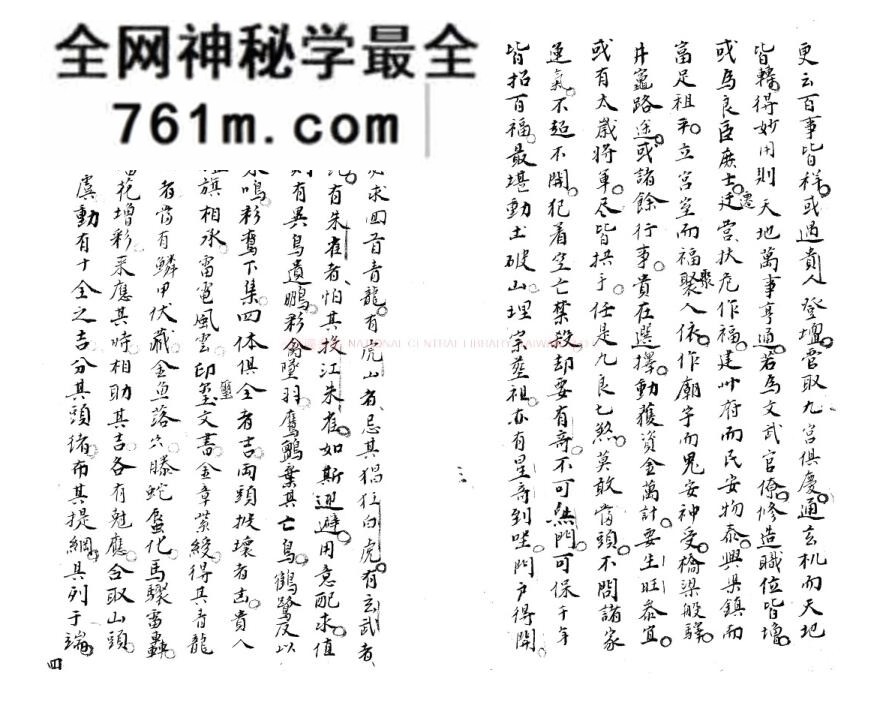 全网神秘学最全
761m.com
更云百事皆祥或過貴人登壇當取九宮俱慶通玄机而天地
皆轉得妙用則天地萬事亨通若為文武官僚修造職位皆增
或為良臣庶士迁營扶危作福建州府而民安物泰興吳鎮而
富足祖平立宮室而福聚人依作廟宇而鬼安神受橋梁船驛
井竈路途或諸餘行事貴在選擇動獲資金萬計要生旺泰宜
或有太歲將軍尽皆拱手任是九良七煞莫敢當頭不問諸家
運氣不超不開犯着空亡禁殺却要有奇不可無門可保千年
皆招百福最堪動土破山埋宗塟祖亦有星奇到坐門户得開
求四首青龍有虎山者忌其猖狂白虎有玄武者
有朱雀者怕其投江朱雀如斯迴避用意配求值
則有異鳥遺鵬彩禽墜羽鷹鸇棄其亡鳥鶴鷺反以
鳴彩鸞下集四体俱全者吉両頭披壞者凶貴人
旗相承雷電風雲印璽文書金章紫綬得其青龍
者當有鱗甲伏藏金魚落穴螣蛇蜃化馬驟雷轟
花增彩来應其時相助其吉各有尅應合取山頭
虞動有十全之吉分其頭緒布其提綱具列于端
四
NATIONAL CENTRAL LIBRARY